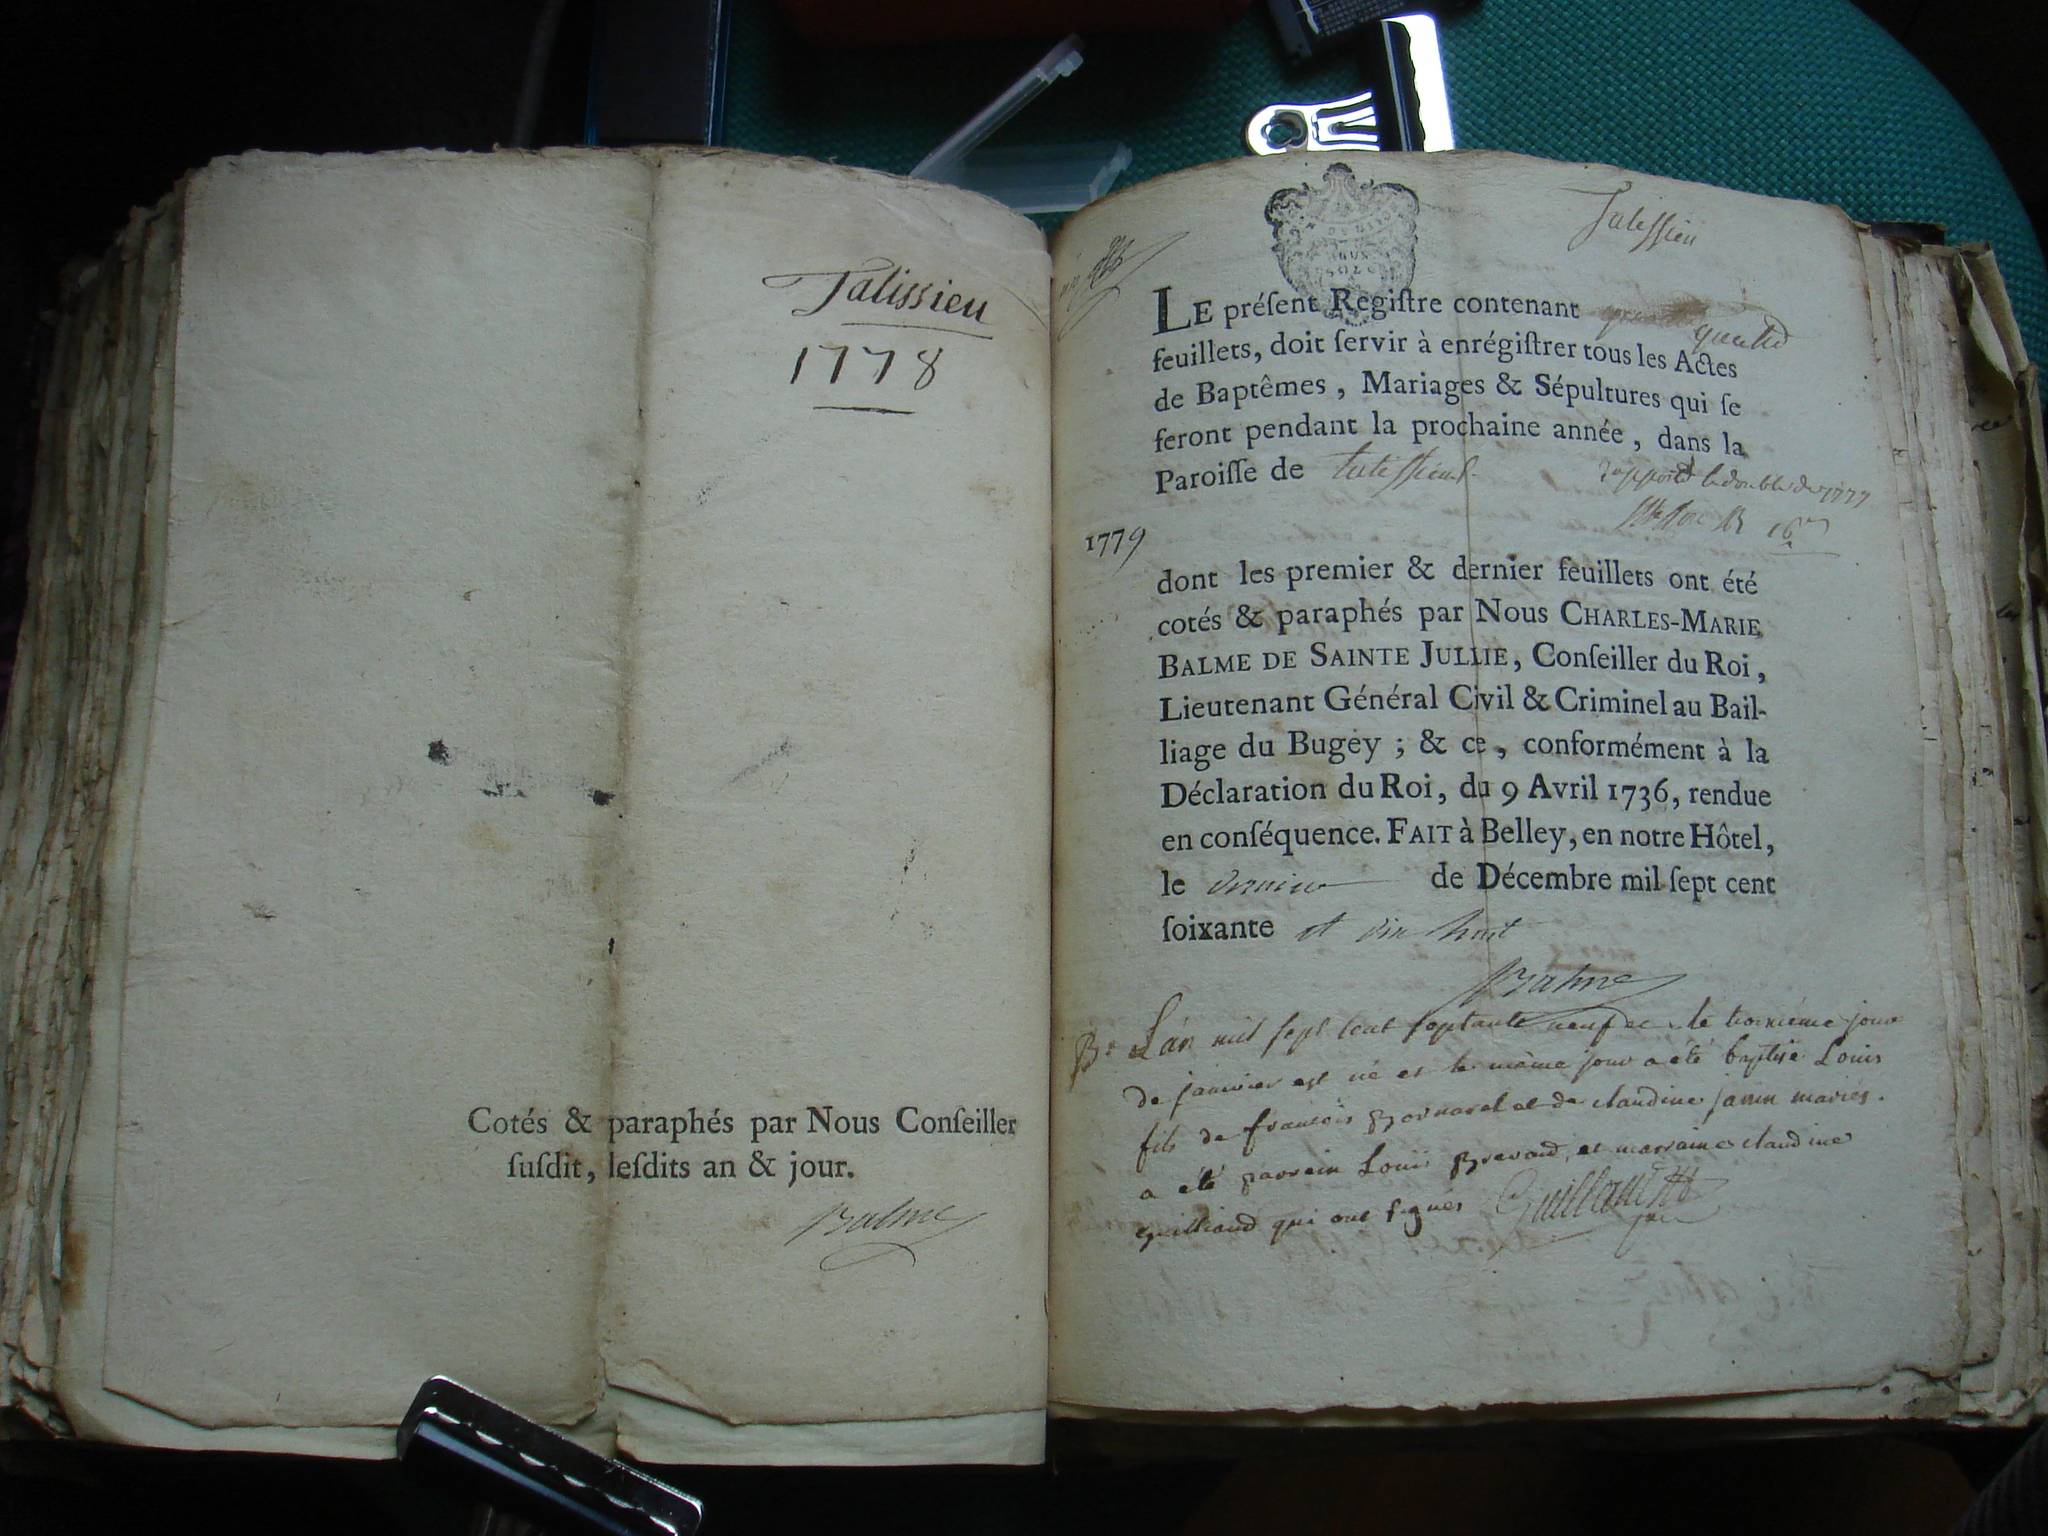 Talissieu
1778
Cotés & paraphés par Nous Conſeiller
ſuſdit, leſdits an & jour.
Balme
Talissieu
LE préſent Regiſtre contenant quatre
feuillets, doit ſervir à enrégiſtrer tous les Actes
de Baptêmes, Mariages & Sépultures qui ſe
feront pendant la prochaine année, dans la
Paroiſſe de Talissieu
rapporté le double de 1777
1779
dont les premier & dernier feuillets ont été
cotés & paraphés par Nous CHARLES-MARIE
BALME DE SAINTE JULLIE, Conſeiller du Roi,
Lieutenant Général Civil & Criminel au Bail-
liage du Bugey ; & ce, conformément à la
Déclaration du Roi, du 9 Avril 1736, rendue
en conſéquence. FAIT à Belley, en notre Hôtel,
le dernier de Décembre mil ſept cent
ſoixante et dix huit
Balme
B. L'an mil sept cent septante neuf et le troisième jour
de janvier est né et le même jour a été baptisé Louis
fils de françois Bornarel et de claudine mariés.
a été parrein Louis et marraine claudine
Guilliand qui ont signés